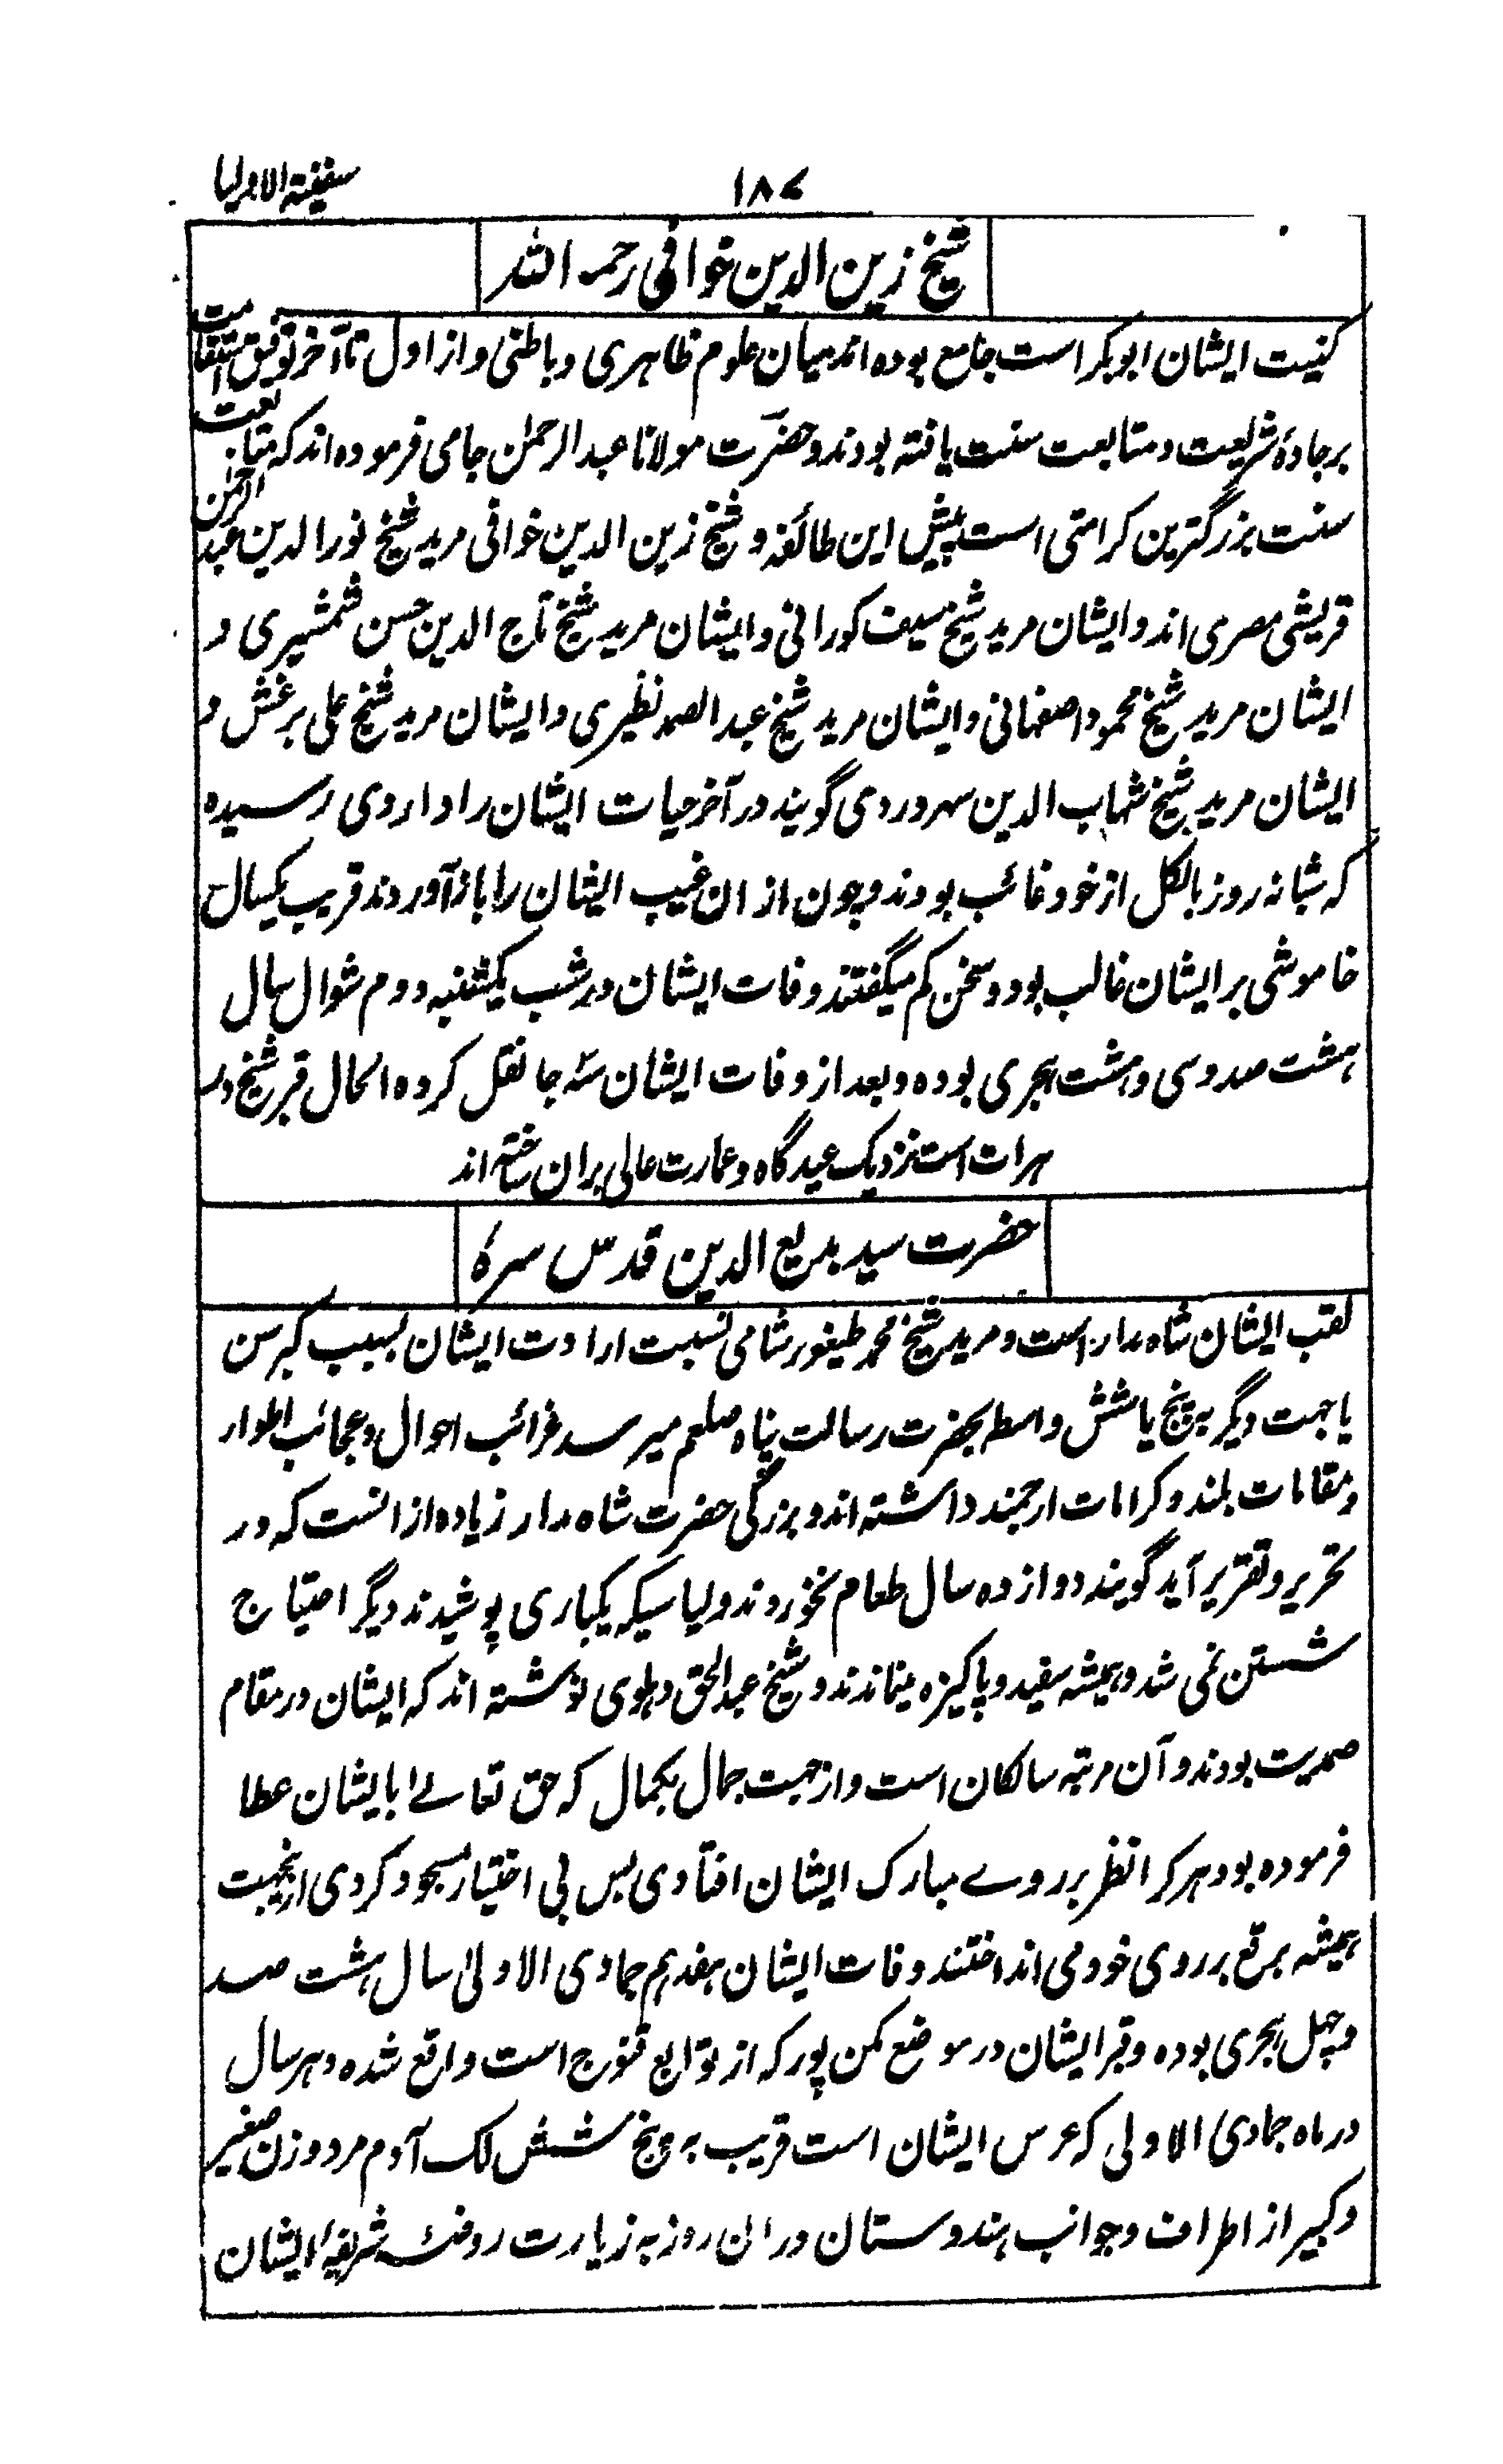 ۱۸۷ سفینة الاولیا
شیخ زین الدین خوافی رحمہ اللہ
کنیت ایشان ابوبکر است جامع بودہ اند میان علوم ظاہری و باطنی و از اول تا آخر توفیق استقامت
بر جادۂ شریعت و متابعت سنت یافتہ بودند و حضرت مولانا عبد الرحمٰن جامی فرمودہ اند کہ متابعت
سنت بزرگترین کرامتی است پیش این طائفہ و شیخ زین الدین خوافی مرید شیخ نور الدین عبد الرحمٰن
قریشی مصری اند و ایشان مرید شیخ سیف کورانی و ایشان مرید شیخ تاج الدین حسن شمشیری و
ایشان مرید شیخ محمود اصفہانی و ایشان مرید شیخ عبد الصمد نظیری و ایشان مرید شیخ علی برغش و
ایشان مرید شیخ شہاب الدین سہروردی گویند در آخر حیات ایشان را واردی رسیدہ
کہ شبانہ روز بالکل از خود غائب بودند و چون از ان غیب ایشان را باز آوردند قریب یکسال
خاموشی بر ایشان غالب بود و سخن کم میگفتند وفات ایشان در شب یکشنبہ دوم شوال سال
ہشت صد و سی و ہشت ہجری بودہ و بعد از وفات ایشان سہ جا نقل کردہ الحال قبر شیخ در
ہرات است نزدیک عیدگاہ و عمارت عالی بران ساختہ اند
حضرت سید بدیع الدین قدس سرہ
لقب ایشان شاہ مدار است و مرید شیخ محمد طیفور شامی نسبت ارادت ایشان بسبب کبر سن
یا جہت دیگر بہ پنج یا شش واسطہ بحضرت رسالت پناہ صلعم میرسد غرائب احوال و عجائب اطوار
و مقامات بلند و کرامات ارجمند داشتہ اند و بزرگی حضرت شاہ مدار زیادہ از انست کہ در
تحریر و تقریر آید گویند دوازدہ سال طعام نخوردند و لباسیکہ یکباری پوشیدند دیگر احتیاج
شستن نمی شد و ہمیشہ سفید و پاکیزہ میماندند و شیخ عبد الحق دہلوی نوشتہ اند کہ ایشان در مقام
صمدیت بودند و آن مرتبہ سالکان است و از جہت جمال بکمال کہ حق تعالےٰ بایشان عطا
فرمودہ بود ہر کرا نظر بر روے مبارک ایشان افتادی بس بی اختیار سجود کردی ازینجہت
ہمیشہ برقع بر روی خود می انداختند وفات ایشان ہفدہم جمادی الاولیٰ سال ہشت صد
و چہل ہجری بودہ و قبر ایشان در موضع مکن پور کہ از توابع قنوج است واقع شدہ و ہر سال
در ماہ جمادی الاولی کہ عرس ایشان است قریب بہ پنج شش لک آدم مرد و زن صغیر
و کبیر از اطراف و جوانب ہندوستان دران روز بہ زیارت روضۂ شریفہ ایشان